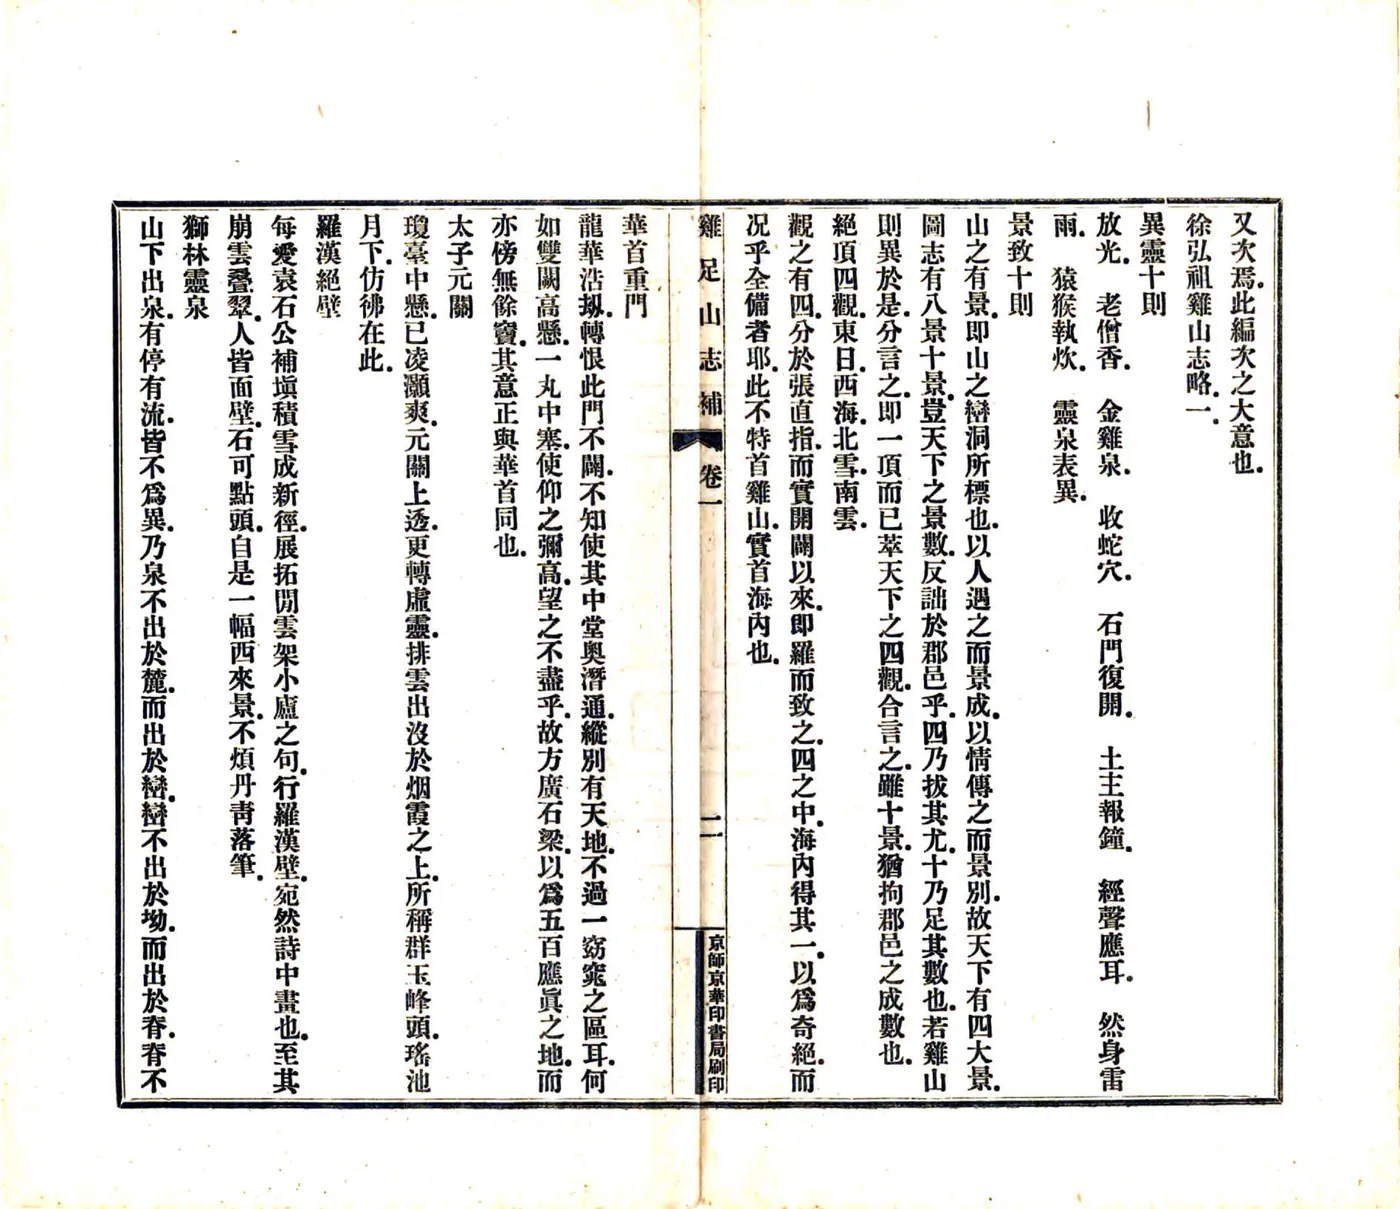 又次焉.此編次之大意也.
徐弘祖雞山志略.一.
異靈十則
放光.　老僧香.　金雞泉.　收蛇穴.　石門復開.　土主報鐘.　經聲應耳.　然身雷
雨.　猿猴執炊.　靈泉表異.
景致十則
山之有景.即山之巒洞所標也.以人遇之而景成.以情傳之而景別.故天下有四大景.
圖志有八景十景.豈天下之景數.反詘於郡邑乎.四乃拔其尤.十乃足其數也.若雞山
則異於是.分言之.即一頂而已萃天下之四觀.合言之.雖十景.猶拘郡邑之成數也.
絕頂四觀.東日.西海.北雪.南雲.
觀之有四.分於張直指.而實開闢以來.即羅而致之.四之中.海內得其一.以爲奇絕.而
况乎全備者耶.此不特首雞山.實首海內也.
雞足山志補
卷一
二
京師京華印書局刷印
華首重門
龍華浩刼.轉恨此門不闢.不知使其中堂奧潛通.縱別有天地.不過一窈窕之區耳.何
如雙闕高懸.一丸中塞.使仰之彌高.望之不盡乎.故方廣石梁.以爲五百應眞之地.而
亦傍無餘竇.其意正與華首同也.
太子元關
瓊臺中懸.已凌灝爽.元關上透.更轉虛靈.排雲出沒於烟霞之上.所稱群玉峰頭.瑤池
月下.仿彿在此.
羅漢絕壁
每愛袁石公補塡積雪成新徑.展拓閒雲架小廬之句.行羅漢壁.宛然詩中畫也.至其
崩雲疊翠.人皆面壁.石可點頭.自是一幅西來景.不煩丹靑落筆.
獅林靈泉
山下出泉.有停有流.皆不爲異.乃泉不出於麓.而出於巒.巒不出於坳.而出於脊.脊不